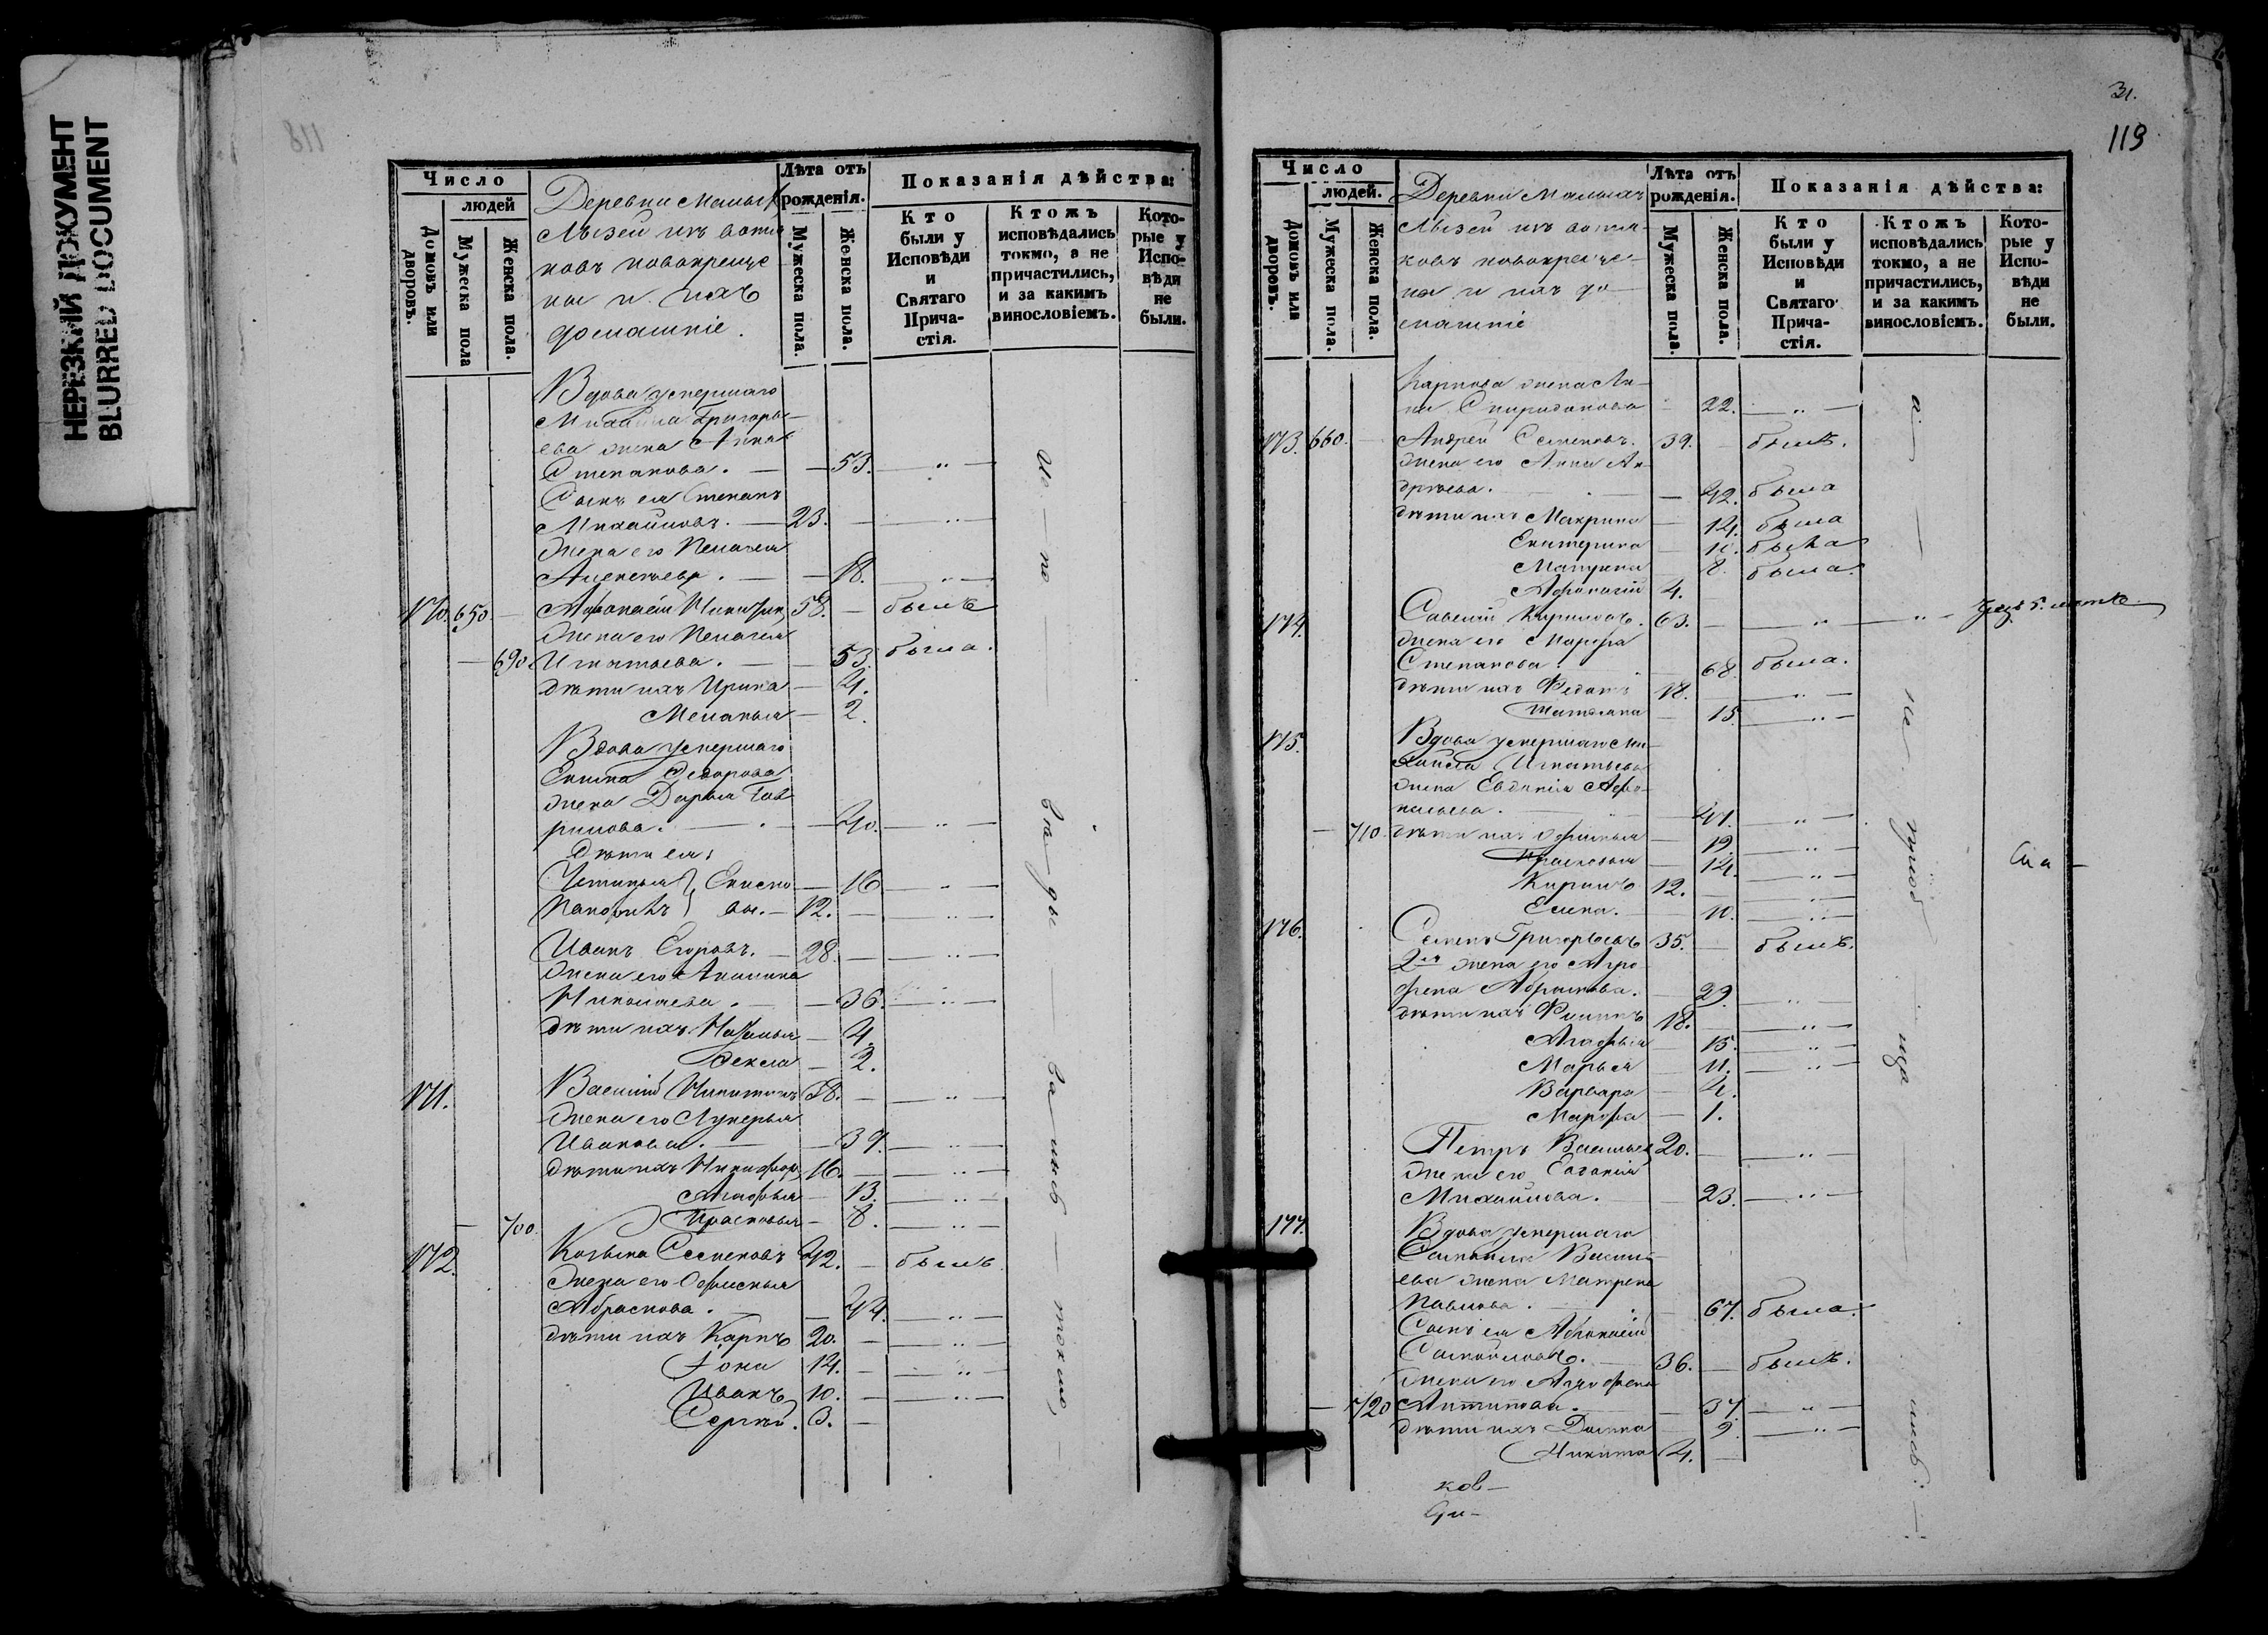 НЕРЕЗКИЙ ДОКУМЕНТ
BLURRED DOCUMENT
118
Число
людей
Домовъ или дворовъ.
Мужеска пола
Женска пола.
Деревни Малыхъ
Лызей изъ вотя
ковъ новокреще
ны и ихъ
домашніе.
Лѣта отъ рожденія.
Мужеска пола.
Женска пола.
Показанія дѣйства:
Кто были у Исповѣди и Святаго Прича-стія.
Ктожъ исповѣдались токмо, а не причастились, и за какимъ винословіемъ.
Кото-рые у Испо-вѣди не были.
Вдова умершаго
Михаила Григорь
ева жена Анна
Степанова. — 53. — „ —
Сынъ ея Степанъ
Михайловъ. — 23. — „ —
Жена его Пелагея
Алексѣева. — 18. — „ —
170. 650. Афанасій Никитин 58. — былъ
Жена его Пелагея
— 690 Игнатьева. — 53. была.
дѣти ихъ Ирина — 4.
Меланья — 2.
Вдова умершаго
Федорова
жена Дарья Гав
рилова. — 40. — „ —
Дѣти ея:
Устинья — 16 — „ —
вы. — 12. — „ —
Иванъ Егоровъ. — 28. — „ —
Жена его Акилина
Николаева. — 36. — „ —
дѣти ихъ Наталья — 4.
Фекла — 2.
171. Василій Никитинъ 38. — „ —
Жена его Лукерья
Иванова. — 39. — „ —
дѣти ихъ Никифор 16. — „ —
Агафья — 13. — „ —
— 700. Прасковья — 8. — „ —
172. Козьма Семеновъ 42. — былъ
Жена его Офимья
Абрамова. — 44. — „ —
дѣти ихъ Карпъ 20. — „ —
Фока 14. — „ —
Иванъ 10. — „ —
Сергѣй. 3. —
31.
119
Число
людей.
Домовъ или дворовъ.
Мужеска пола.
Женска пола.
Деревни Малыхъ
Лызей изъ вотя-
ковъ новокреще-
ны и ихъ до-
машніе
Лѣта отъ рожденія.
Мужеска пола.
Женска пола.
Показанія дѣйства:
Кто были у Исповѣди и Святаго Прича-стія.
Ктожъ исповѣдались токмо, а не причастились, и за какимъ винословіемъ.
Кото-рые у Испо-вѣди не были.
Карпова жена Ан-
на Спиридонова — 22. — „ —
173. 660. Андрей Семеновъ. 39. — былъ.
Жена его Анна Ан-
дреева. — 42. была
дѣти ихъ Макрина — 14. была
Екатерина — 10. была
Матрена — 8. была.
Афанасій 4.
174. Савелій Кириловъ. 63. — „ — „ —
Жена его Марфа
Степанова. — 68. была.
дѣти ихъ Федотъ 18. — „ —
Татьяна — 15 — „ —
175. Вдова умершаго Ми-
хайла Игнатьева
жена Евдокія Афа-
насьева. — 41. — „ —
— 710. дѣти ихъ Офимья — 19. — „ —
Прасковья — 14. — „ —
Кирилъ 12. — „ —
Елена. — 10. — „ —
176. Семенъ Григорьевъ 35. — былъ.
2я жена его Агро-
фена Абрамова. — 29. — „ —
дѣти ихъ Филипъ 18. — „ —
Агафья — 15. — „ —
Марья — 11. — „ —
Варвара — 4.
Марфа — 1.
Петръ Васильев 20. — „ —
Жена его
Михайлова. — 23. — „ —
177. Вдова умершаго
Самойла Василь-
ева жена Матрена
Павлова. — 67. была.
Сынъ ея Афанасій
Самойловъ. 36. — былъ.
Жена его Агрофена
— 720 Антипова. — 37. — „ —
дѣти ихъ Домна — 9. — „ —
Никита 4. —
ков-